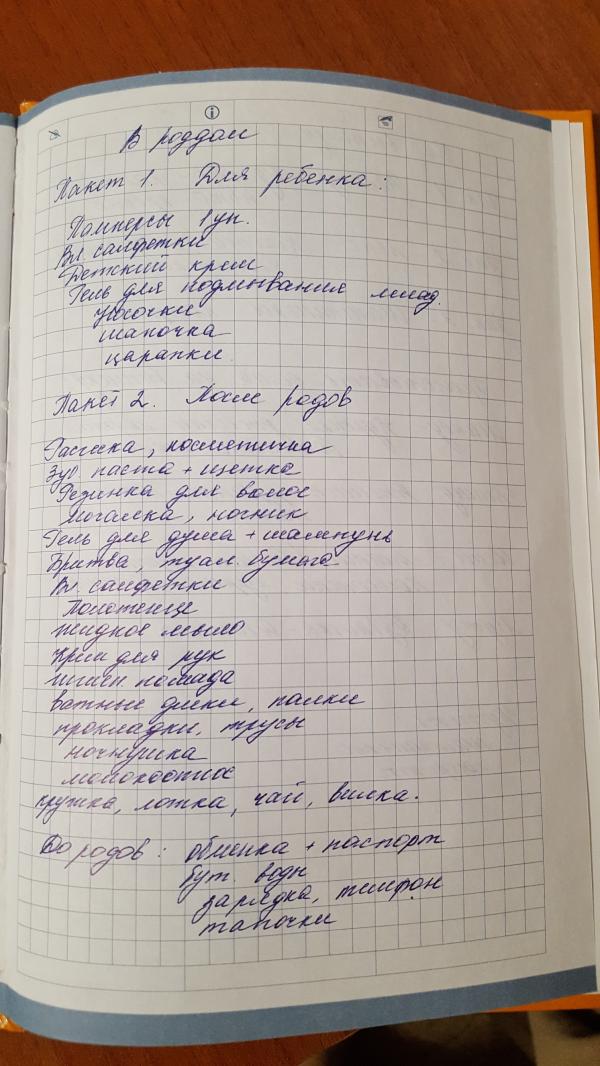 В роддом
Пакет 1. Для ребенка:
Памперсы 1 уп.
Вл. салфетки
Детский крем
Гель для подмывания млад.
шапочка
царапки
Пакет 2. После родов
Расческа, косметичка
Зуб. паста + щетка
Резинка для волос
мочалка, ночник
Гель для душа + шампунь
Бритва, туал. бумага
Вл. салфетки
Полотенце
жидкое мыло
Крем для рук
гигиен. помада
ватные диски, палки
прокладки, трусы
ночнушка
молокоотсос
кружка, ложка, чай, вилка.
До родов: обменка + паспорт
бут. воды
зарядка, телефон
тапочки